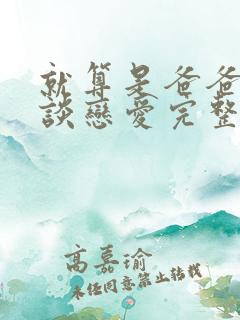 就算是爸爸
談戀愛完整
高嘉瑜
未经同意禁止转载